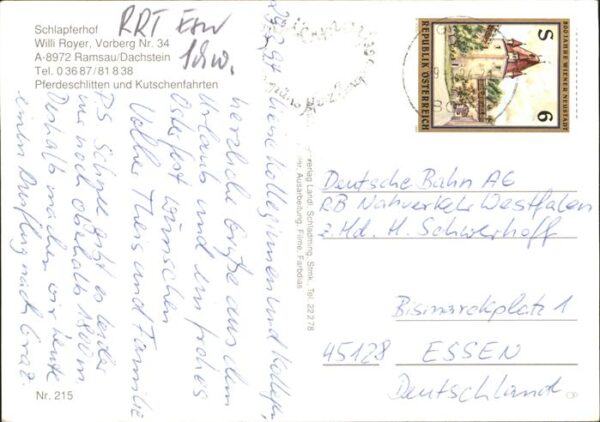 Schlapferhof
Willi Royer, Vorberg Nr. 34
A-8972 Ramsau/Dachstein
Tel. 0 36 87 / 81 8 38
Pferdeschlitten und Kutschenfahrten
RRT
29.3.94
Liebe Kolleginnen und Kollegen,
herzliche Grüße aus dem
Urlaub und ein frohes
Osterfest wünschen
Volker Theis und Familie
P.S. Schnee gibt es leider
nur noch oberhalb 1800 m
Deshalb machen wir heute
einen Ausflug nach Graz.
Nr. 215
Landl, Schladming, Stmk., Tel. 22 2 78
Ausarbeitung, Filme, Farbdias
800 JAHRE WIENER NEUSTADT
S 6
REPUBLIK ÖSTERREICH
Deutsche Bahn AG
RB Nahverkehr Westfalen
z. Hd. H. Schwerhoff
Bismarckplatz 1
45128 ESSEN
Deutschland